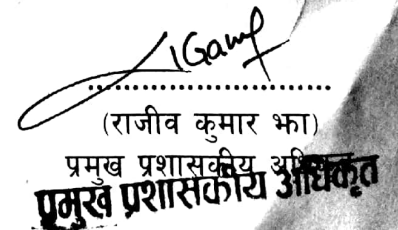 ....................................
(राजीव कुमार झा)
प्रमुख प्रशासकीय अधिकृत
प्रमुख प्रशासकीय अधिकृत